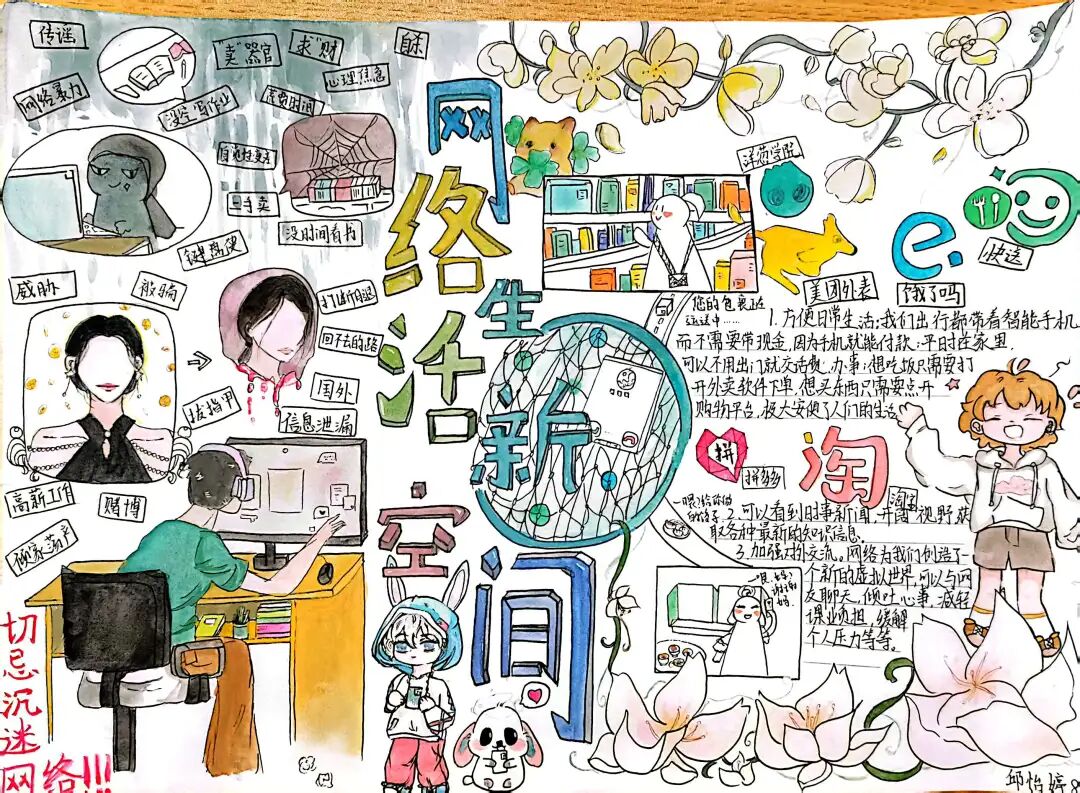 传谣
"卖"器官
求"财
自杀
网络暴力
没空写作业
荒费时间
心理焦虑
二手卖
没时间看书
键盘侠
威胁
被骗
打断腿
回不去的路
国外
拔指甲
信息泄漏
高薪工作
赌博
倾家荡产
切忌沉迷网络!!!
网络生活新空间
洋葱学院
美团外卖
e.
饿了吗
快送
您的包裹正
运送中……
1.方便日常生活:我们出行都带着智能手机
而不需要带现金,因为手机就能付款;平时在家里,
可以不用出门就交话费、办事;想吃饭只需要打
开外卖软件下单,想买东西只需要点开
购物平台,极大方便了人们的生活
拼
拼多多
淘
淘宝
2.可以看到时事新闻,开阔视野获
取各种最新的知识信息.
3.加强对外交流。网络为我们创造了一
个新的虚拟世界,可以与网
友聊天,倾吐心事,减轻
课业负担,缓解
个人压力等等。
邱怡婷